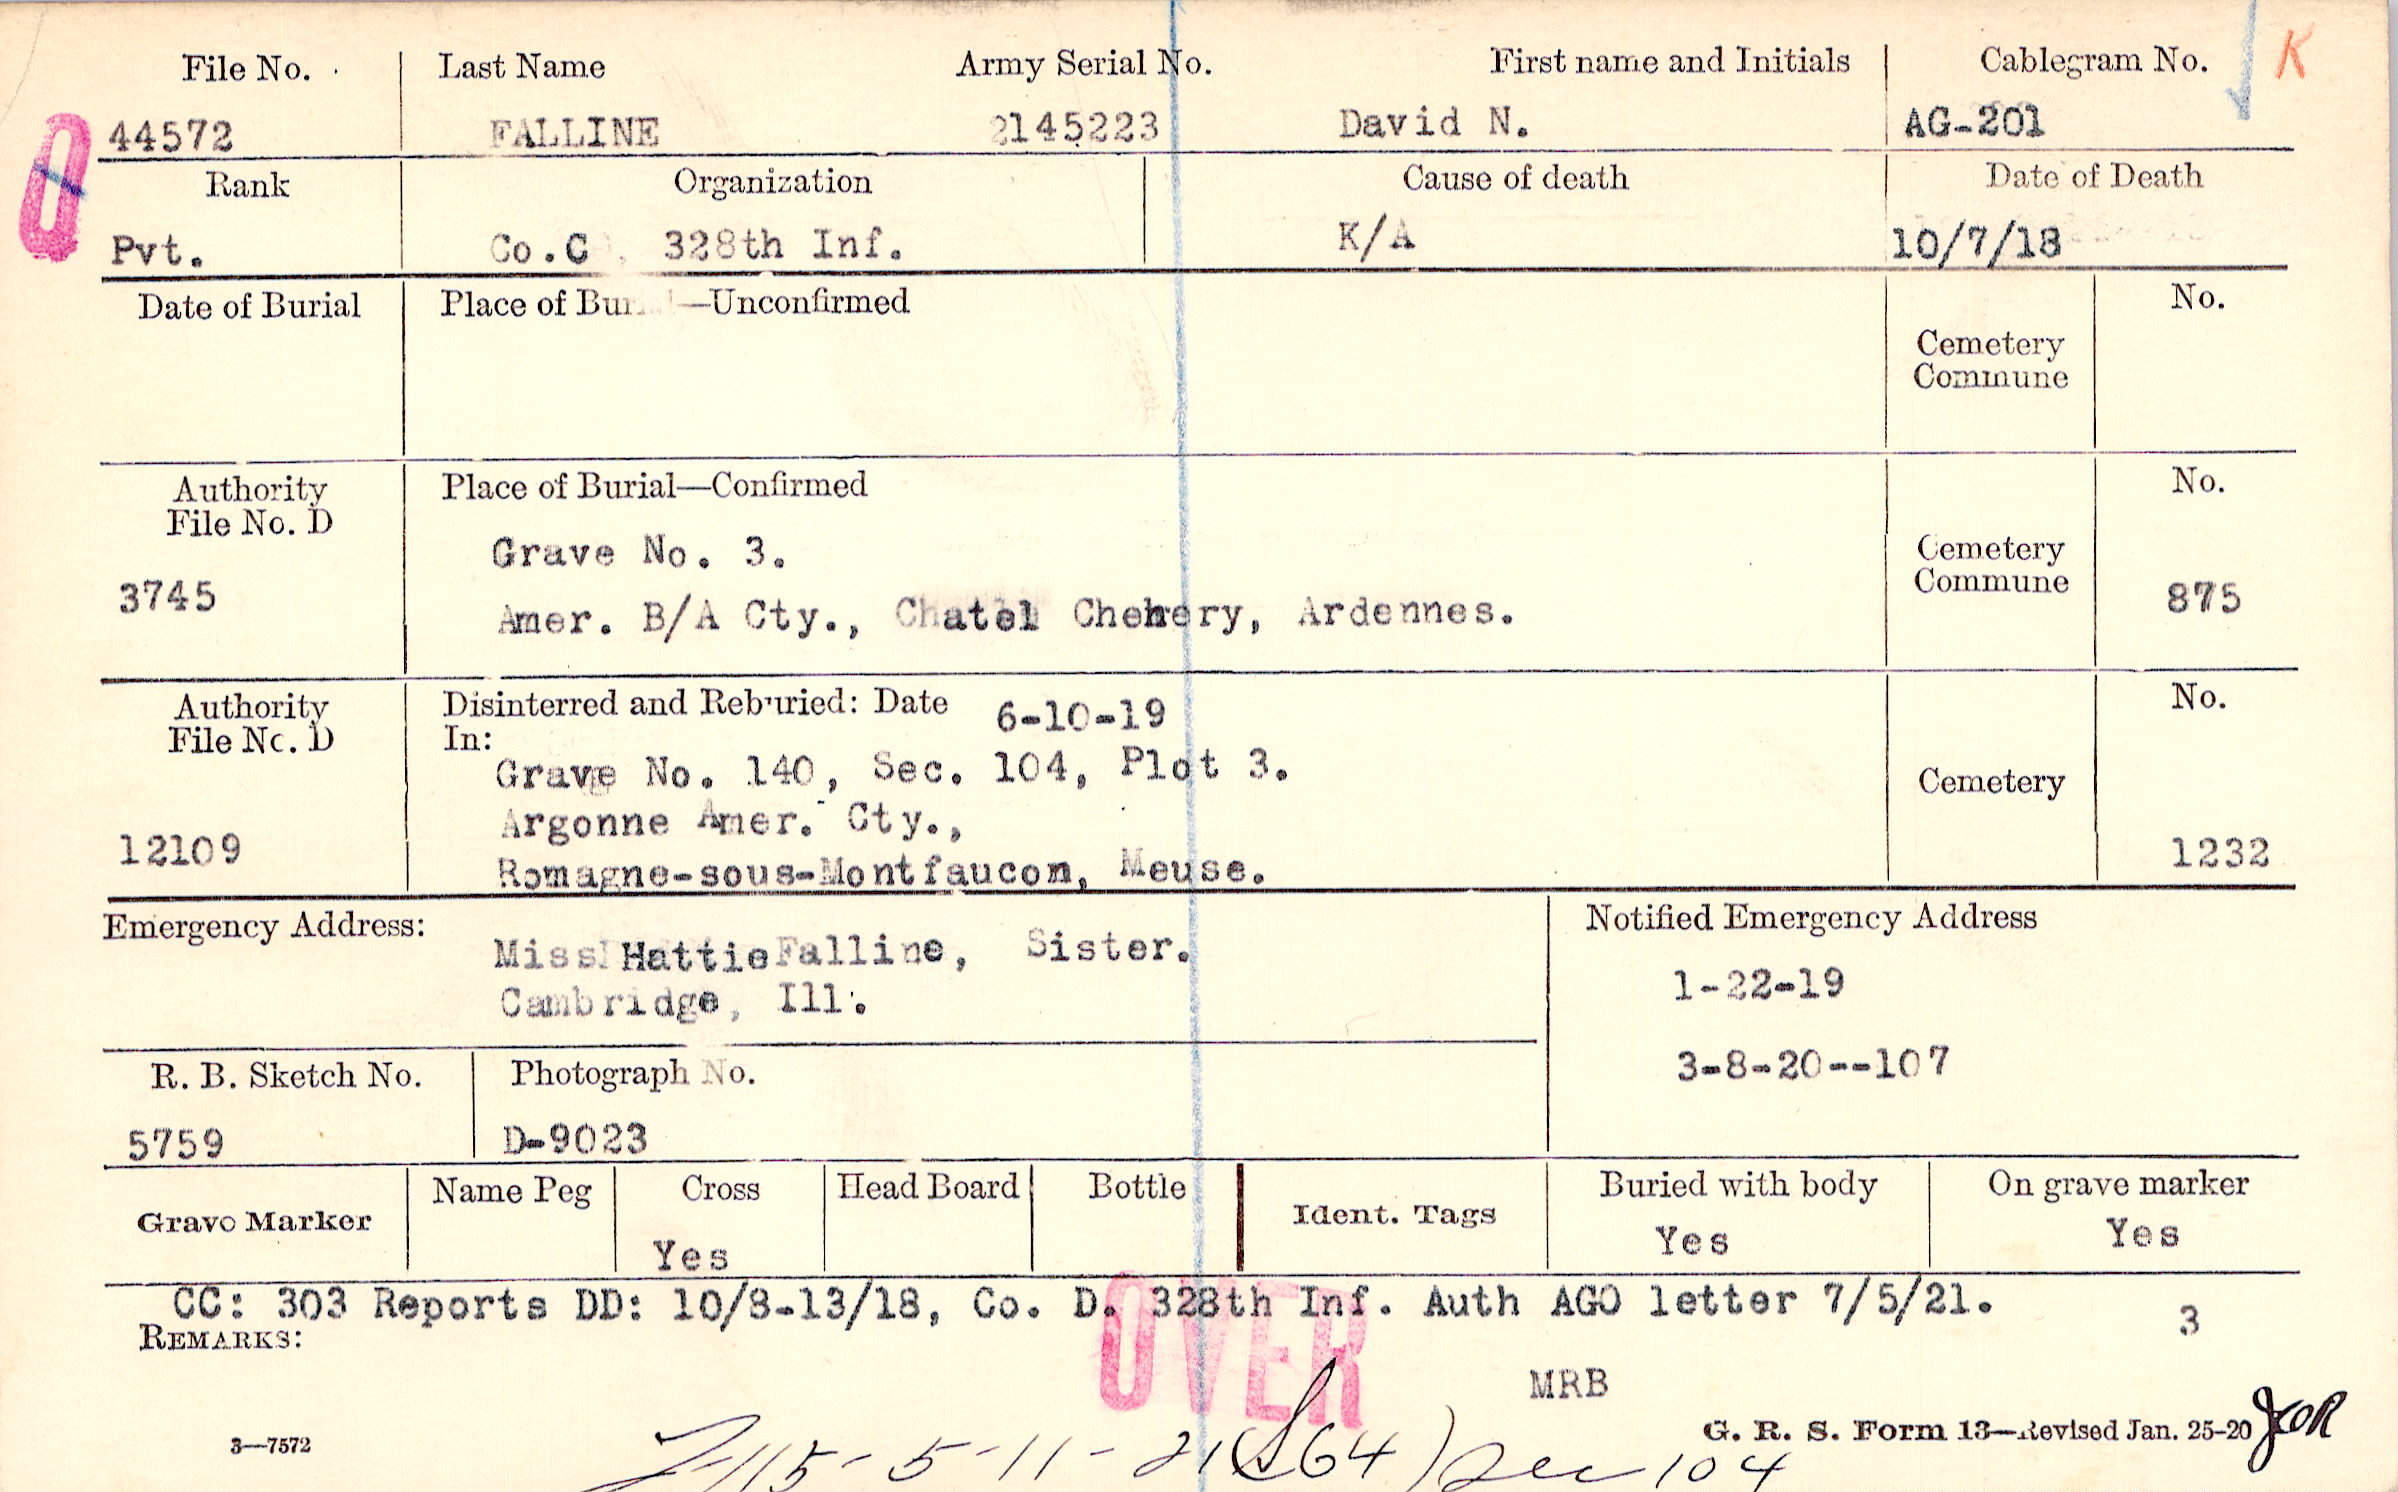 File No. Last Name Army Serial No. First name and Initials Cablegram No. K
44572 FALLINE 2145223 David N. AG-201
O
Rank Organization Cause of death Date of Death
Pvt. Co.C 328th Inf. K/A 10/7/18
Date of Burial Place of Bur —Unconfirmed No.
Cemetery
Commune
Authority Place of Burial—Confirmed No.
File No. D
Grave No. 3. Cemetery
3745 Commune 875
Amer. B/A Cty., Chatel Chehery, Ardennes.
Authority Disinterred and Reburied: Date 6-10-19 No.
File No. D In:
Grave No. 140, Sec. 104, Plot 3. Cemetery
Argonne Amer. Cty.,
12109 1232
Romagne-sous-Montfaucon, Meuse.
Emergency Address: Notified Emergency Address
Miss Hattie Falline, Sister. 1-22-19
Cambridge, Ill. 3-8-20--107
R. B. Sketch No. Photograph No.
5759 D-9023
Grave Marker Name Peg Cross Head Board Bottle Ident. Tags Buried with body On grave marker
Yes Yes Yes
CC: 303 Reports DD: 10/8-13/18, Co. D. 328th Inf. Auth AGO letter 7/5/21. 3
REMARKS:
OVER
MRB
G. R. S. Form 13—Revised Jan. 25-20
3—7572
5-11-21 (S64) Sec 104